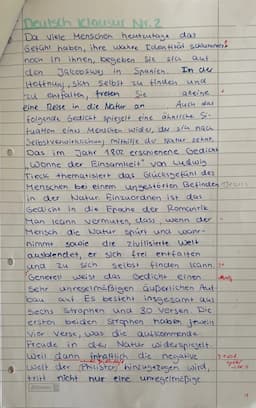 Deutsch Klausur Nr. 2
Da viele Menschen heutzutage das
Gefühl haben, ihre wahre Identität schlummert
noch in ihnen, begeben sie sich auf
den Jakobsweg in Spanien. In der
Hoffnung, sich selbst zu finden und
zu entfalten, treten sie alleine
eine Reise in die Natur an. Auch das
folgende Gedicht spiegelt eine ähnliche Si-
tuation eines Menschen wider, der sich nach
Selbstverwirklichung mithilfe der Natur sehnt.
Das im Jahr 1802 erschienene Gedicht
"Wonne der Einsamkeit" von Ludwig
Tieck thematisiert das Glücksgefühl des
Menschen bei einem ungestörten Befinden
in der Natur. Einzuordnen ist das
Gedicht in die Epoche der Romantik.
Man kann vermuten, dass, wenn der
Mensch die Natur spürt und wahr-
nimmt sowie die zivilisierte Welt
ausblendet, er sich frei entfalten
und zu sich selbst finden kann.
Generell weist das Gedicht einen
sehr unregelmäßigen äußerlichen Auf-
bau auf. Es besteht insgesamt aus
sechs Strophen und 30 Versen. Die
ersten beiden Strophen haben jeweils
vier Verse, was die aufkommende
Freude in der Natur widerspiegelt.
Weil dann inhaltlich die negative
Welt der Philister hinzugezogen wird,
tritt nicht nur eine unregelmäßige